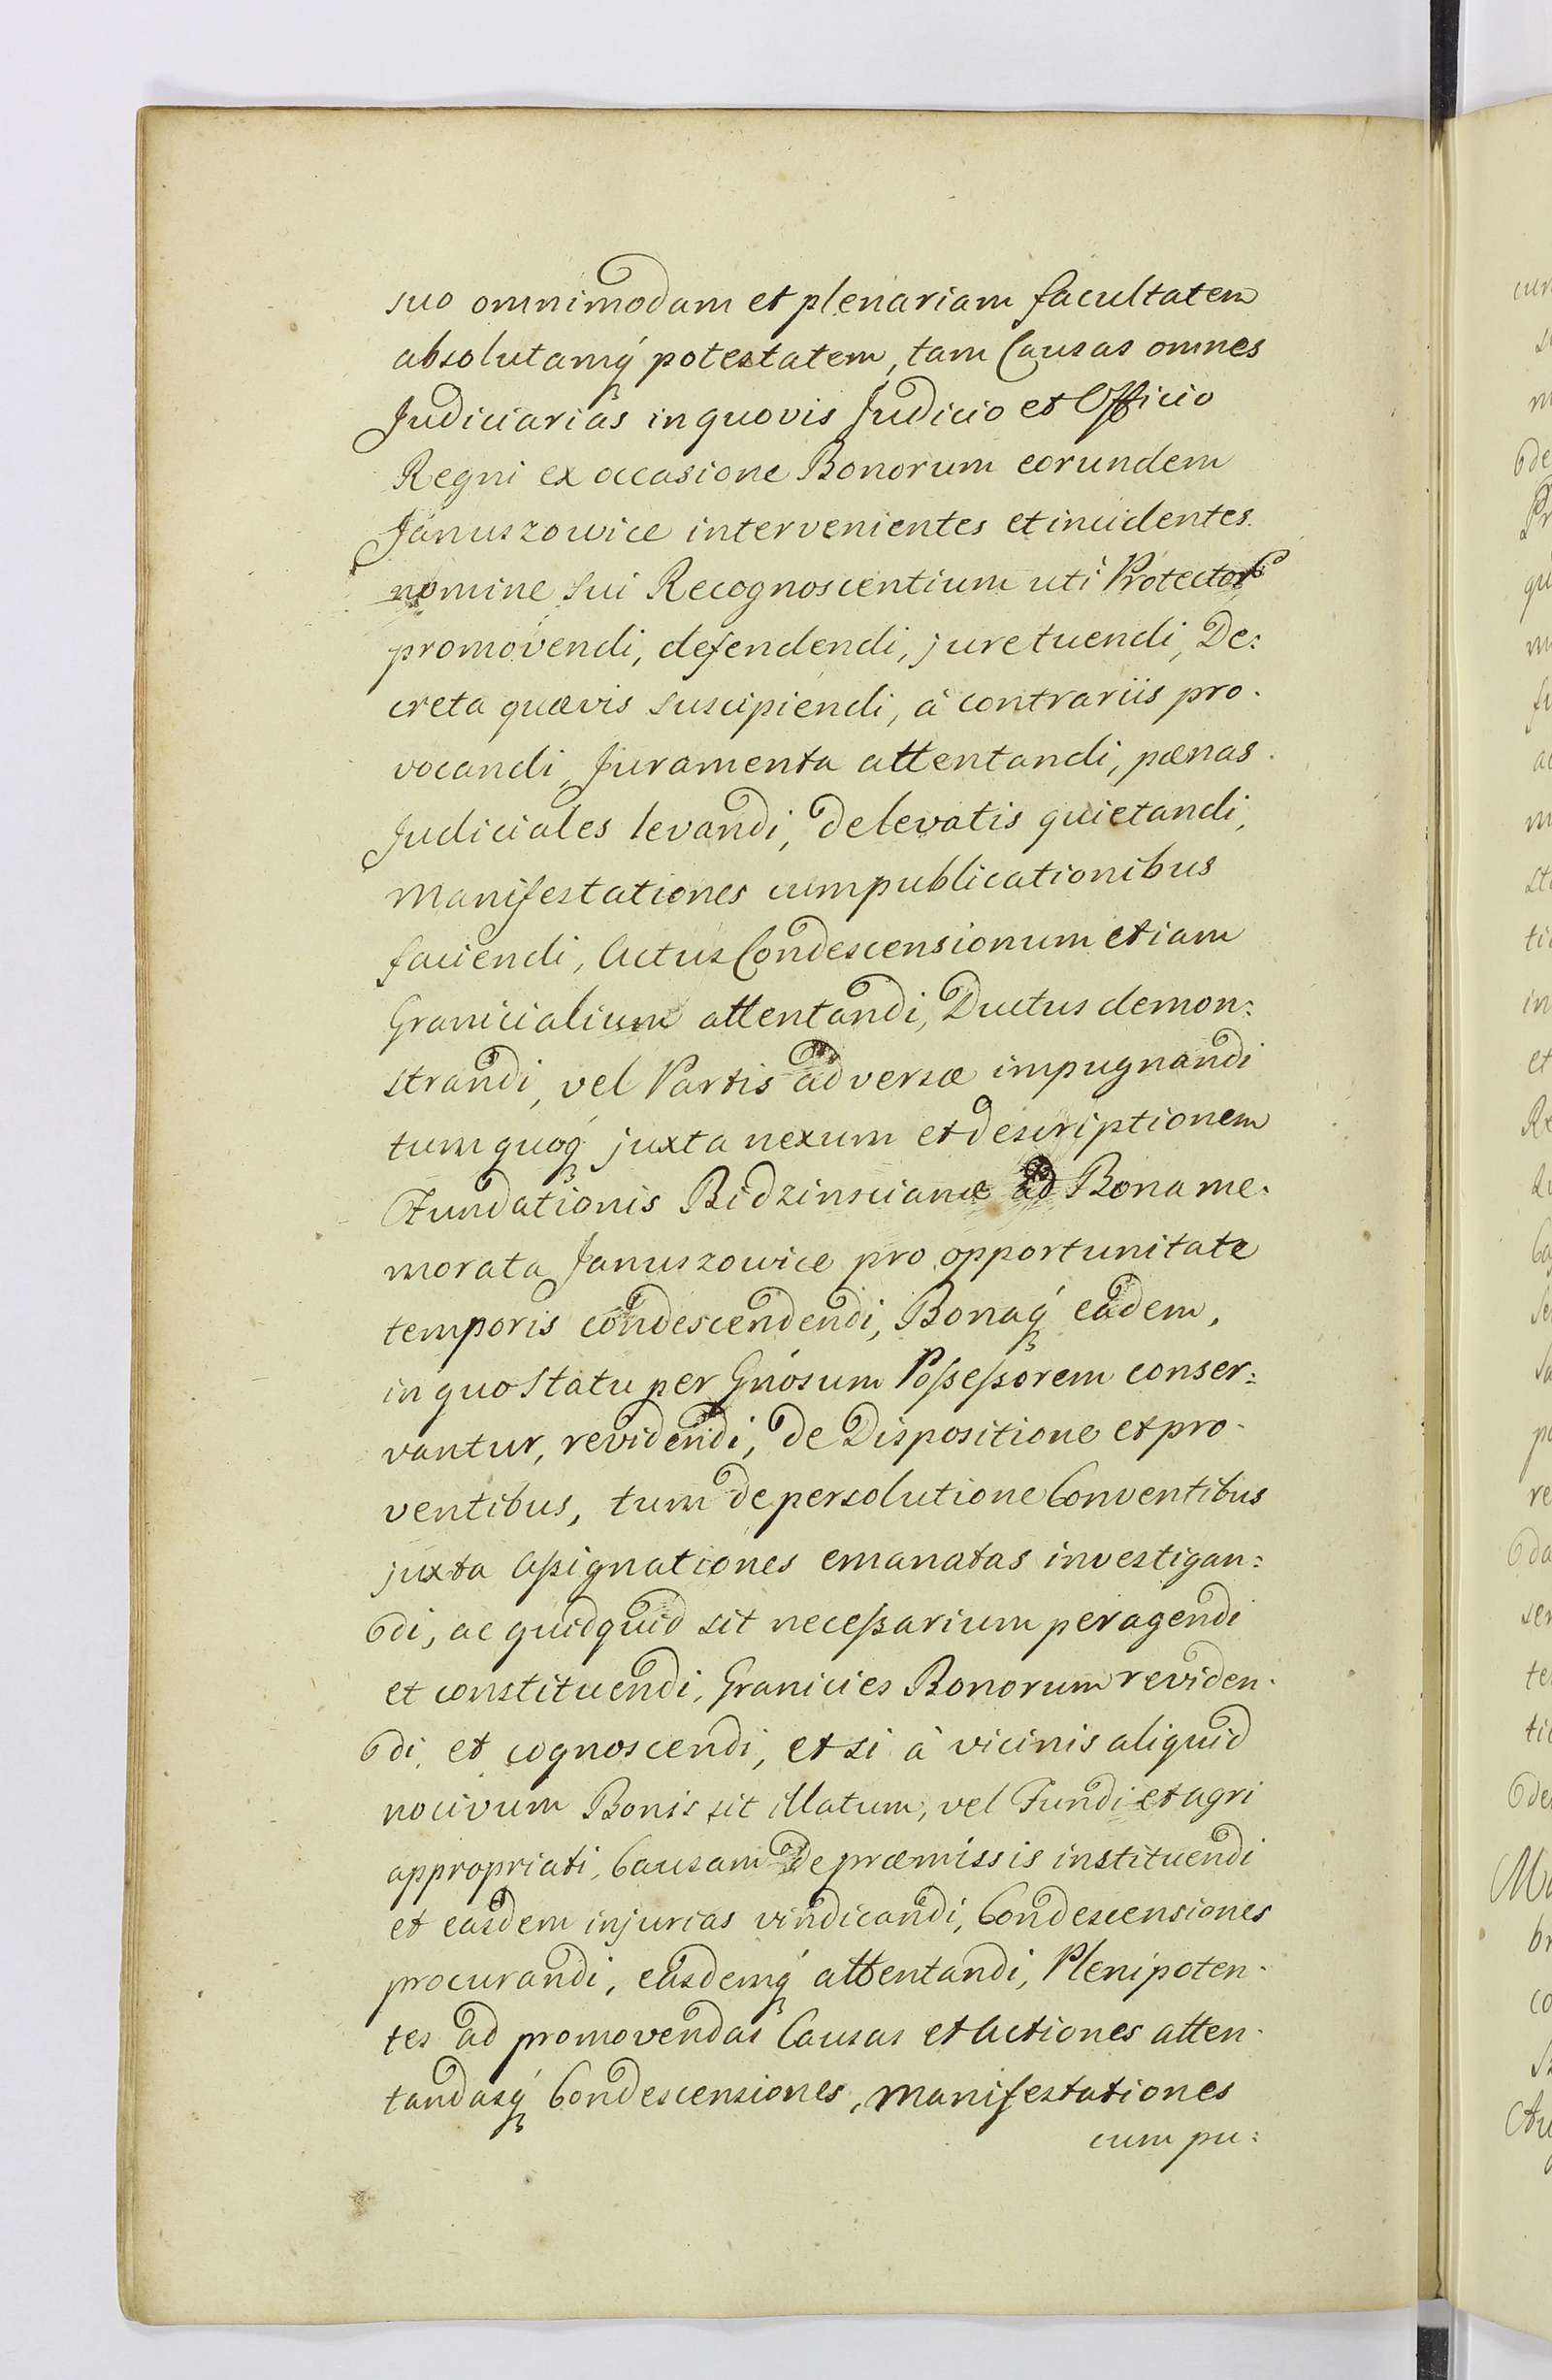 suo omnimodam et plenariam facultatem
absolutamq́ potestatem, tam Causas omnes
Judiciarias in quovis Judicio et Officio
Regni ex occasione Bonorum eorundem
Januszowice intervenientes et incidentes
nomine sui Recognoscentium uti
promovendi, defendendi, jure tuendi, De:
creta quævis suscipiendi, à contrariis pro.
vocandi, Juramenta attentandi, pænas
Judiciales levandi, de levatis quietandi,
Manifestationes cum publicationibus
faciendi, Actus Condescensionum etiam
Granicialium attentandi, Ductus demon:
strandi, vel Partis adversæ impugnandi
tum quoq́ juxta nexum et descriptionem
Fundationis Bidzinscianæ ad Bona me.
morata Januszowice pro opportunitate
temporis condescendendi, Bonaq́ eadem,
in quo statu per Gnósum Poßeßorem conser:
vantur, revidendi, de Dispositione et pro.
ventibus, tum de persolutione Conventibus
juxta Aßignationes emanatas investigan:
di, ac quidquid sit neceßarium peragendi
et constituendi, Granicies Bonorum reviden.
di, et cognoscendi, et si à vicinis aliquid
nocivum Bonis sit illatum, vel Fundi et agri
appropriati, Causam de præmissis instituendi
et easdem injurias vindicandi, Condescensiones
procurandi, easdemq́ attentandi, Plenipoten.
tes ad promovendas Causas et Actiones atten.
tandasq́ Condescensiones, Manifestationes
cum pu: